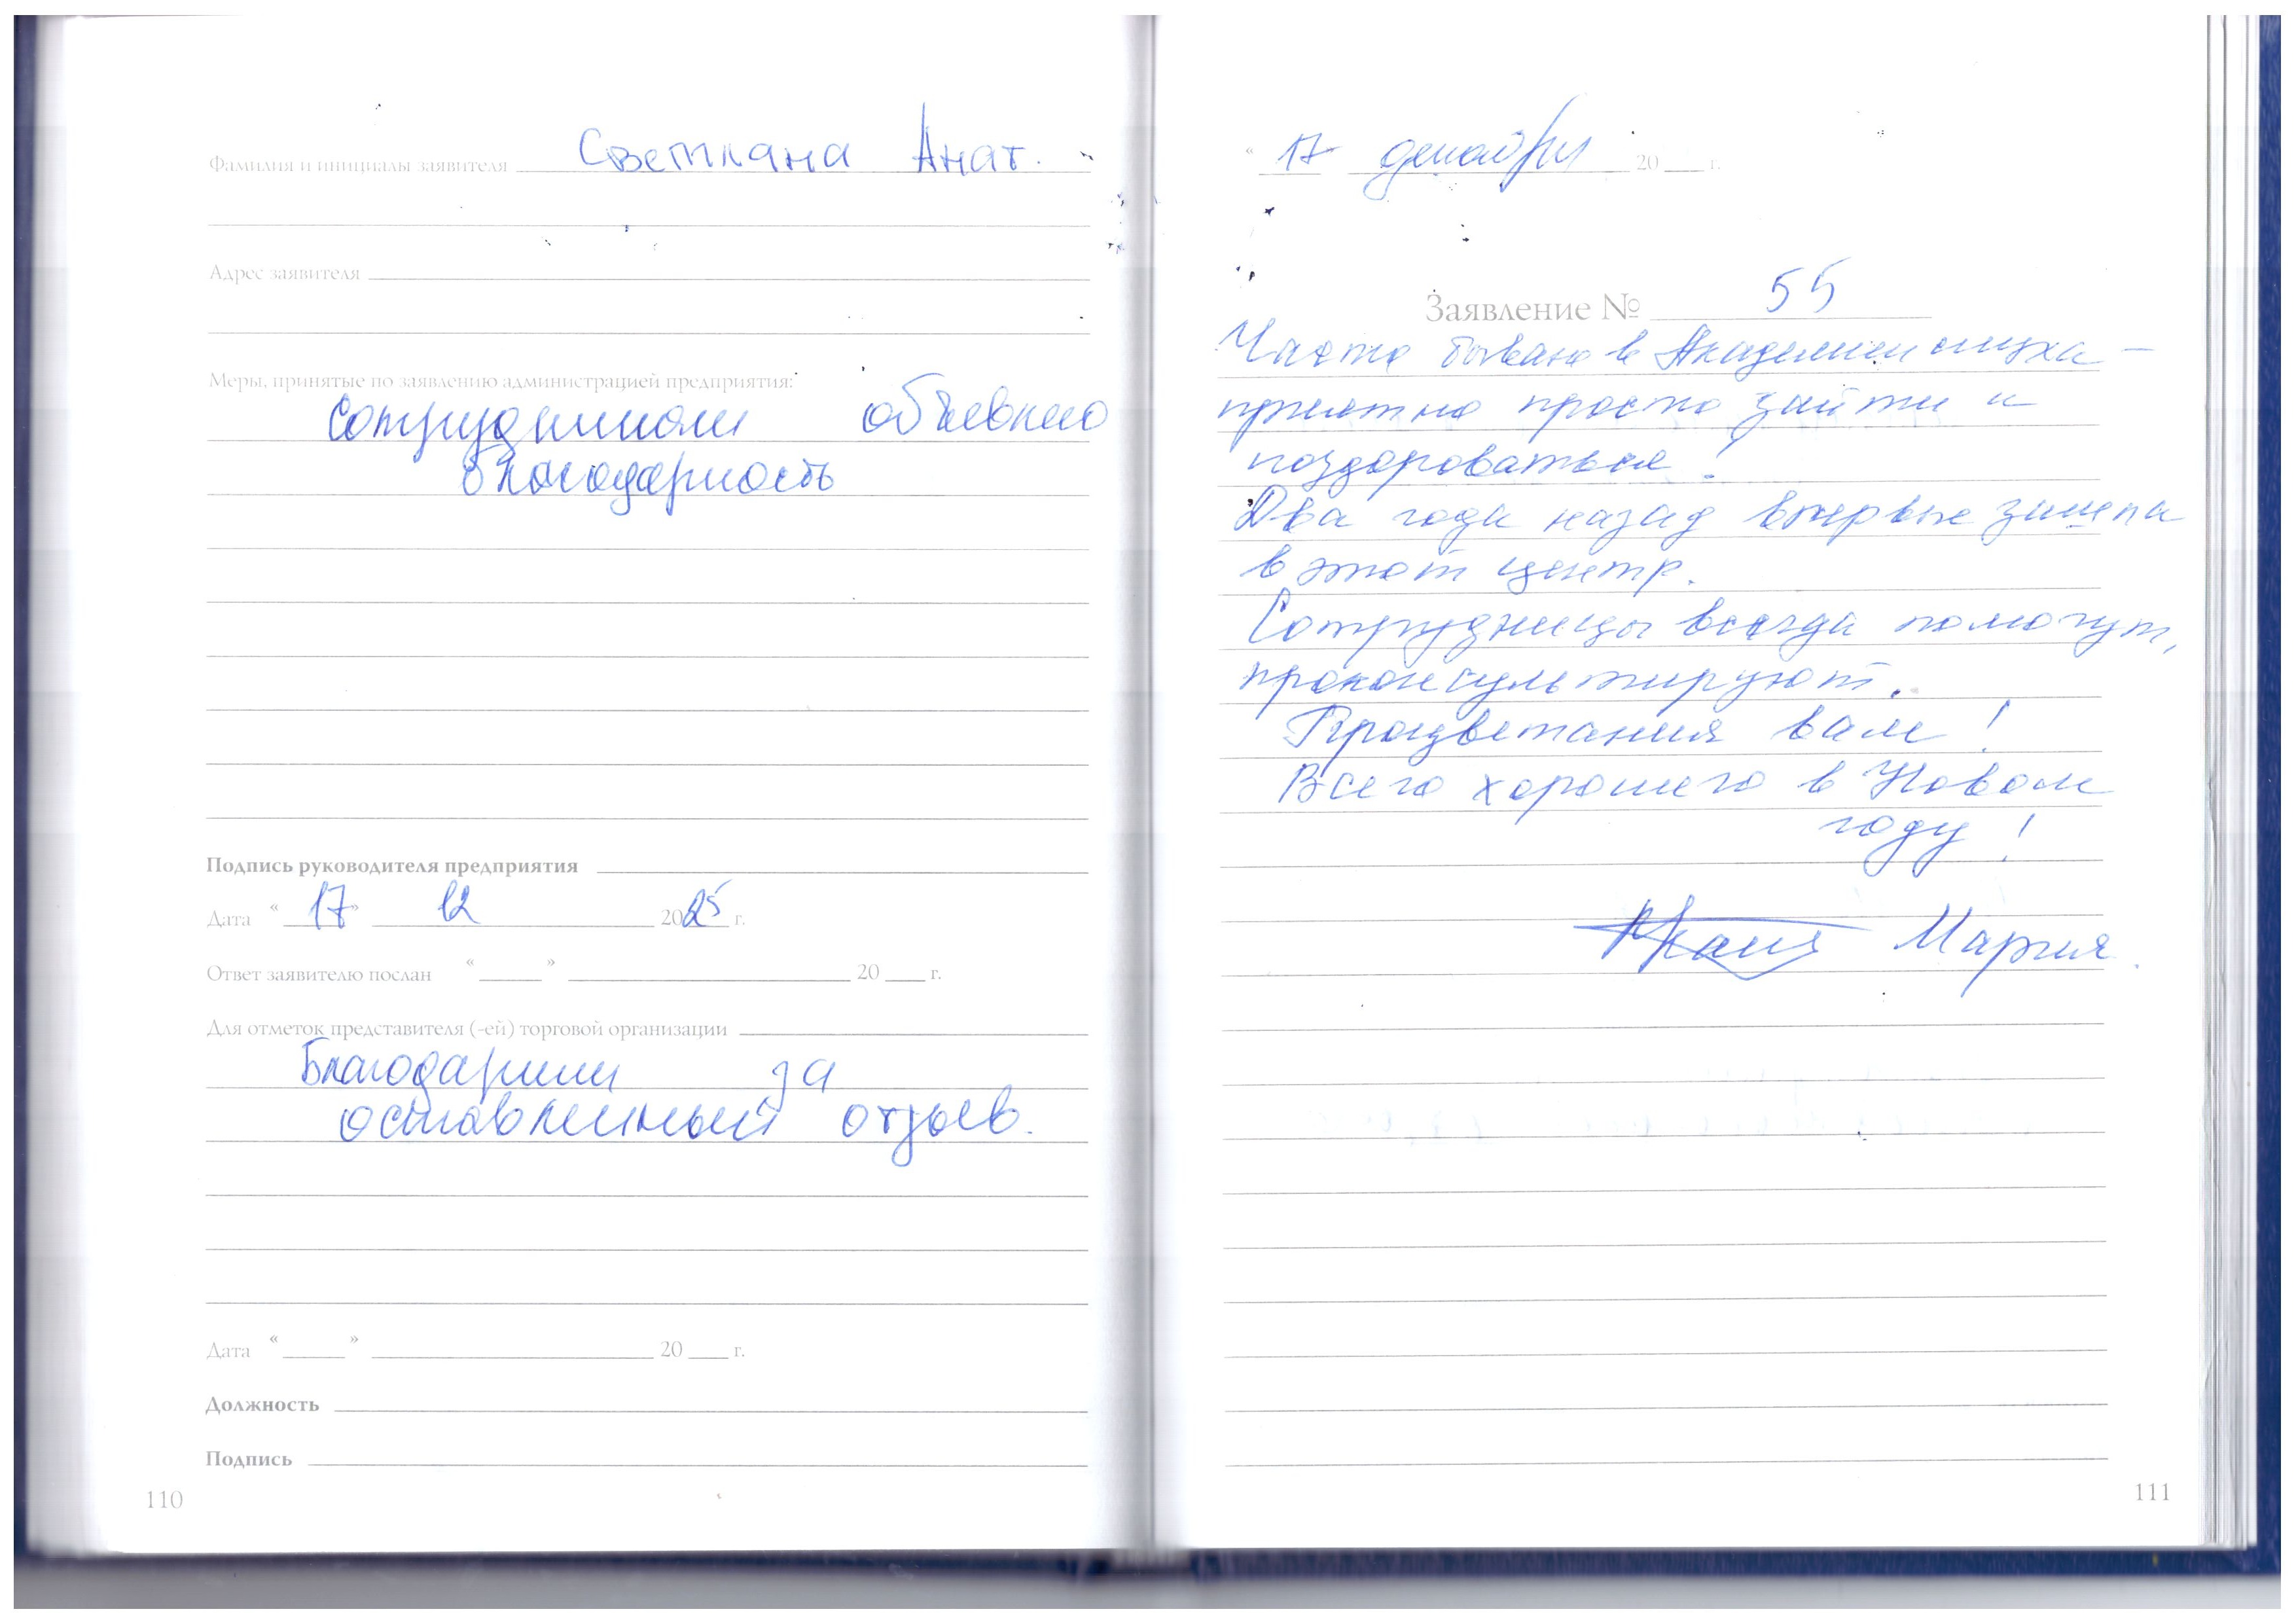 Фамилия и инициалы заявителя Светлана Анат.
Адрес заявителя
Меры, принятые по заявлению администрацией предприятия:
Сотрудникам объявлено
благодарность
Подпись руководителя предприятия
Дата “ 17 ” 12 2025 г.
Ответ заявителю послан “ ” 20 г.
Для отметок представителя (-ей) торговой организации
Благодарим за
оставленный отзыв.
Дата “ ” 20 г.
Должность
Подпись
110
“ 17 декабря 20 г.
Заявление № 55
Часто бываю в Академии слуха –
приятно просто зайти и
поздороваться!
Два года назад впервые зашла
в этот центр.
Сотрудницы всегда помогут,
проконсультируют.
Процветания вам!
Всего хорошего в Новом
году!
Мария.
111